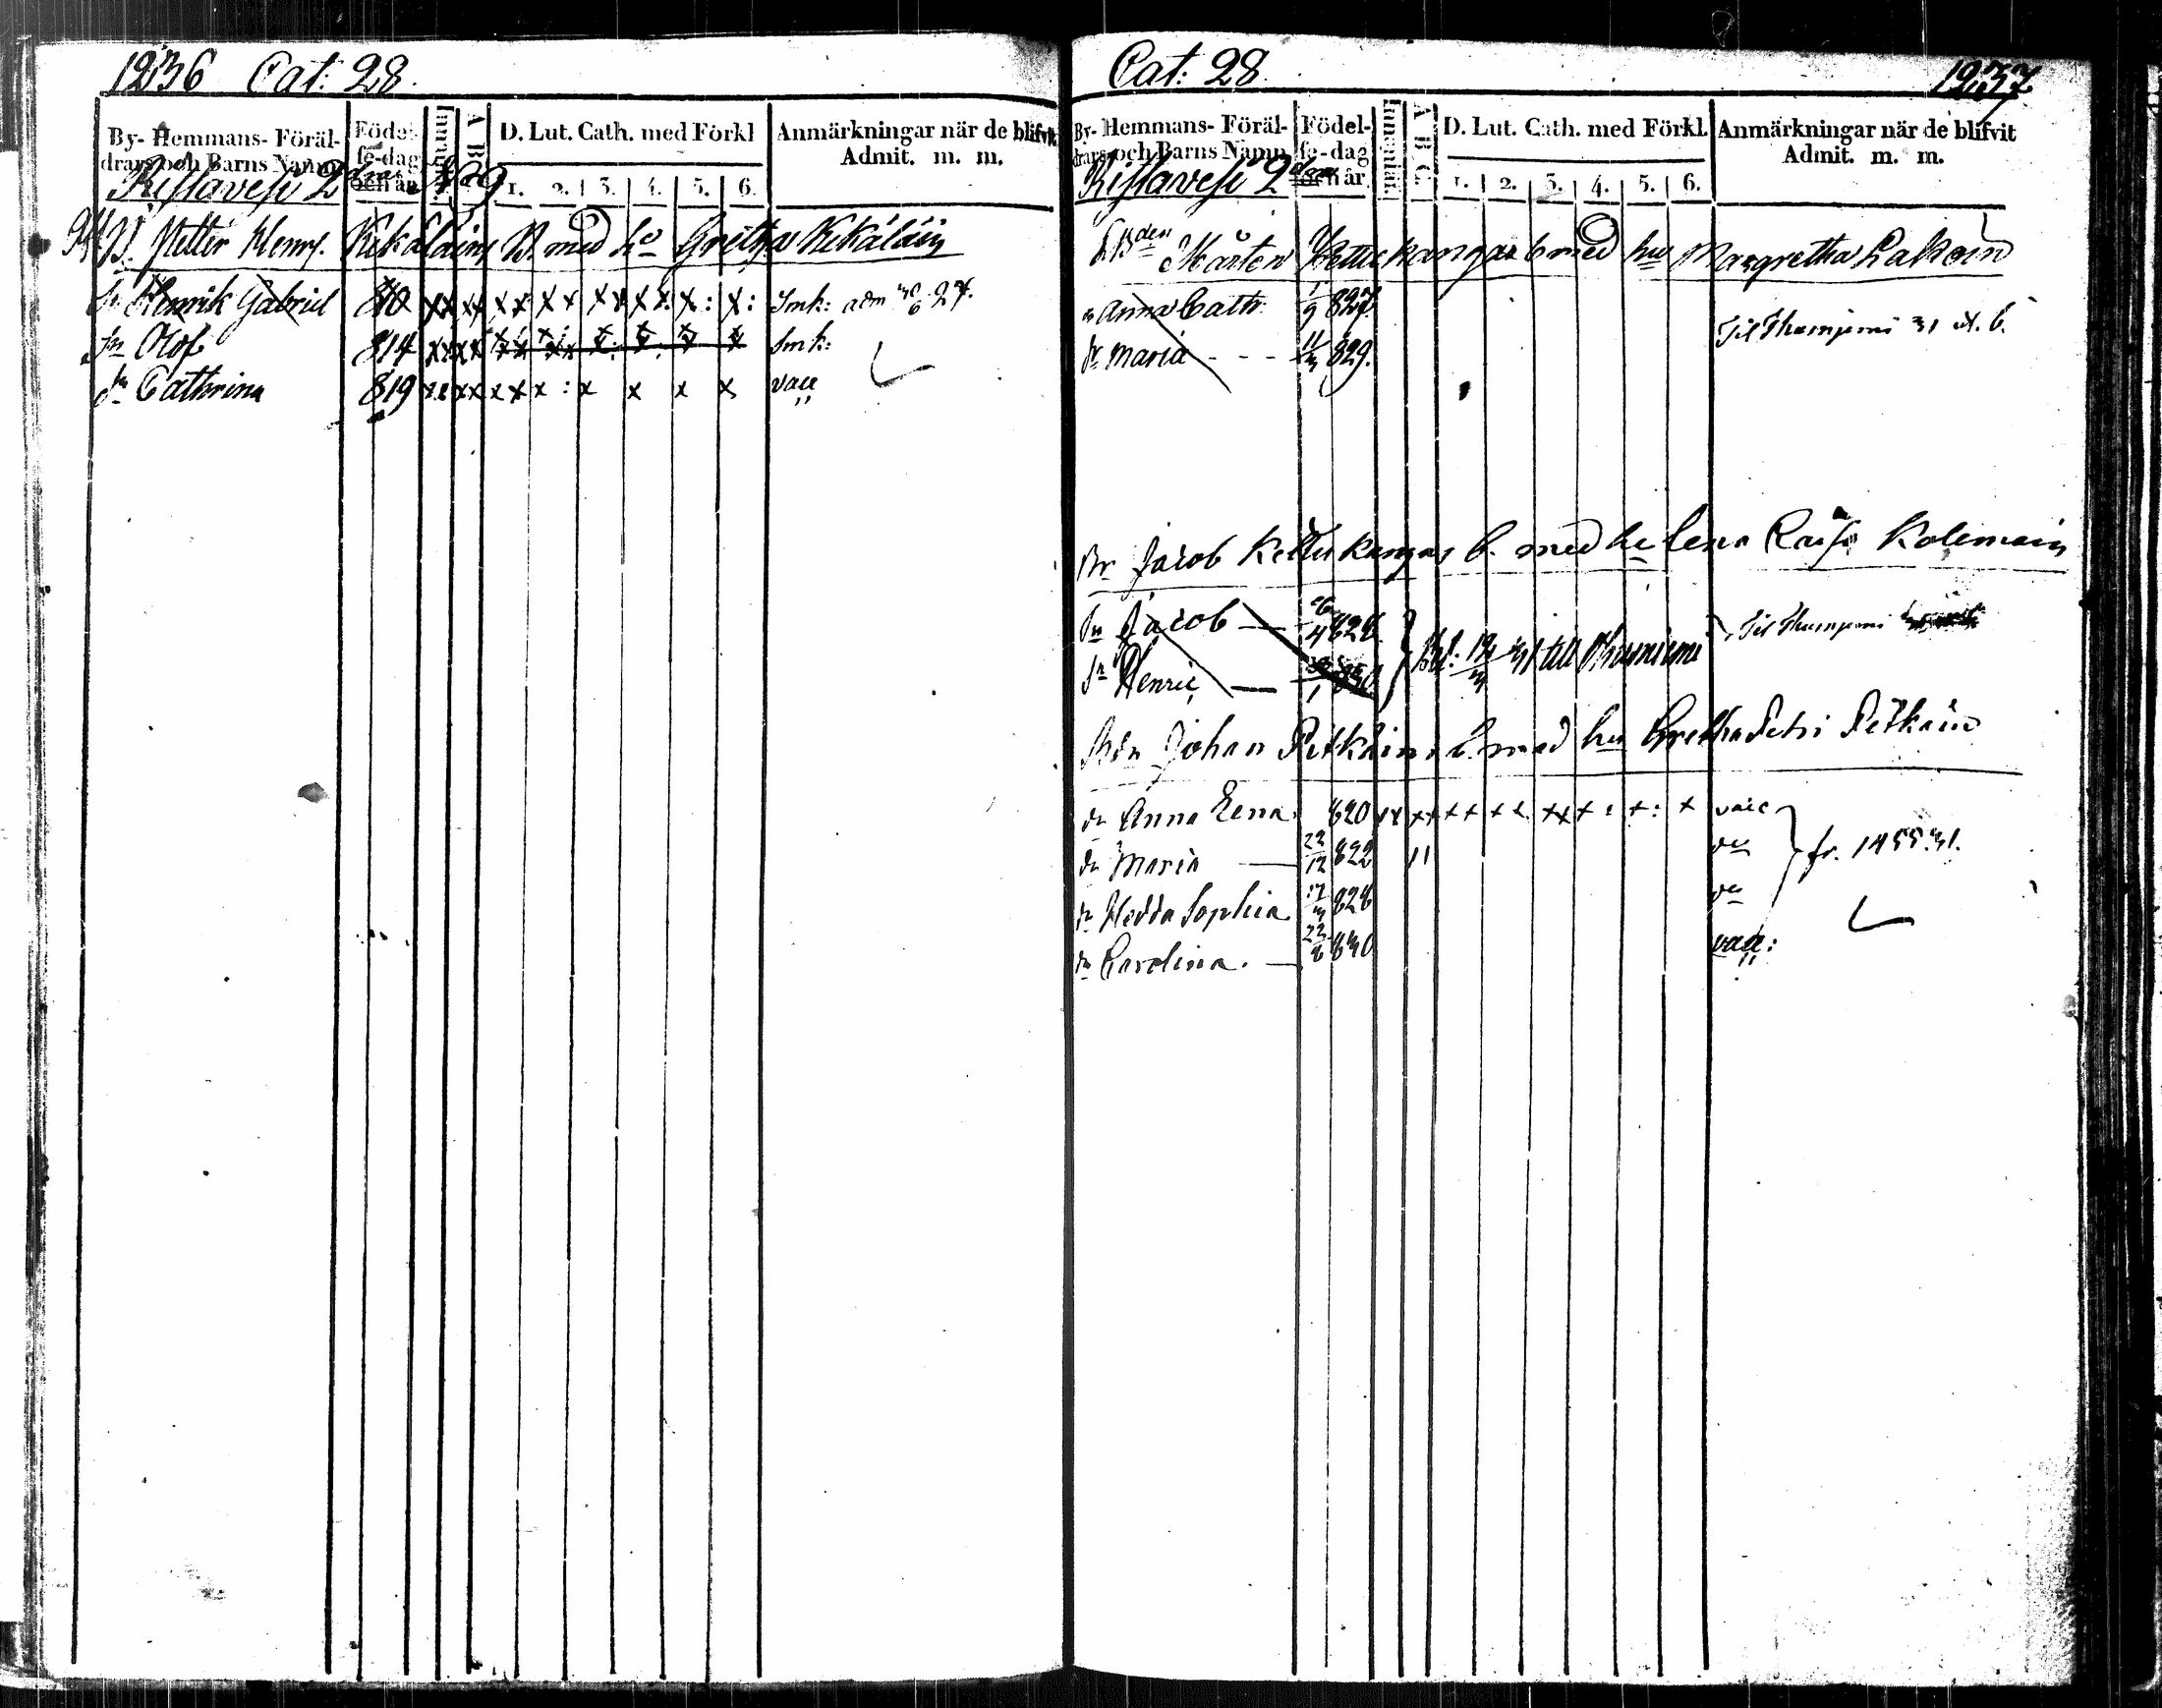 1236 Cat: 28.
By- Hemmans- Föräl-
drars och Barns Namn
Födel-
se-dag
och år
Innanläs.
A B C
D. Lut. Cath. med Förkl
1. 2. 3. 4. 5. 6.
Anmärkningar när de blifvit
Admit. m. m.
Ristavesi 2 29
Petter Henr. Kekäläin B. med hu Gretha Kekäläin
Sn Henrik Gabriel 810 xx xx xx xx xx x: x: x: Smk: adm 30/6 27.
Sn Olof 814 Smk:
dr Cathrina 819 xx xx xx x : x x x x vacc
Cat: 28. 1237
By- Hemmans- Föräl-
drars och Barns Namn
Födel-
se-dag
och år
Innanläs.
A B C.
D. Lut. Cath. med Förkl.
1. 2. 3. 4. 5. 6.
Anmärkningar när de blifvit
Admit. m. m.
Ristavesi 2
Mårten Kettukangas b med hu Margretha Lakoin
Anna Cath: 1/9 827.
dr Maria - - - 829.
Til Thumiemi 31
Br Jacob Kettukangas b. med hu Lena Kaisa Kolemain
Sn Jacob — 26/4 828
Sn Henric — 830
31 till Thumiemi
Til Thumiemi
Johan Pitkäin b. med hu Gretha Petri Pitkäin
dr Anna Lena 820 xx xx xx xx xx x : x: x vacc
dr Maria — 22/12 822 11 do
fr. 1455. 31.
dr Hedda Sophia 828 do
dr Carolina. — 22/8 830 vacc: